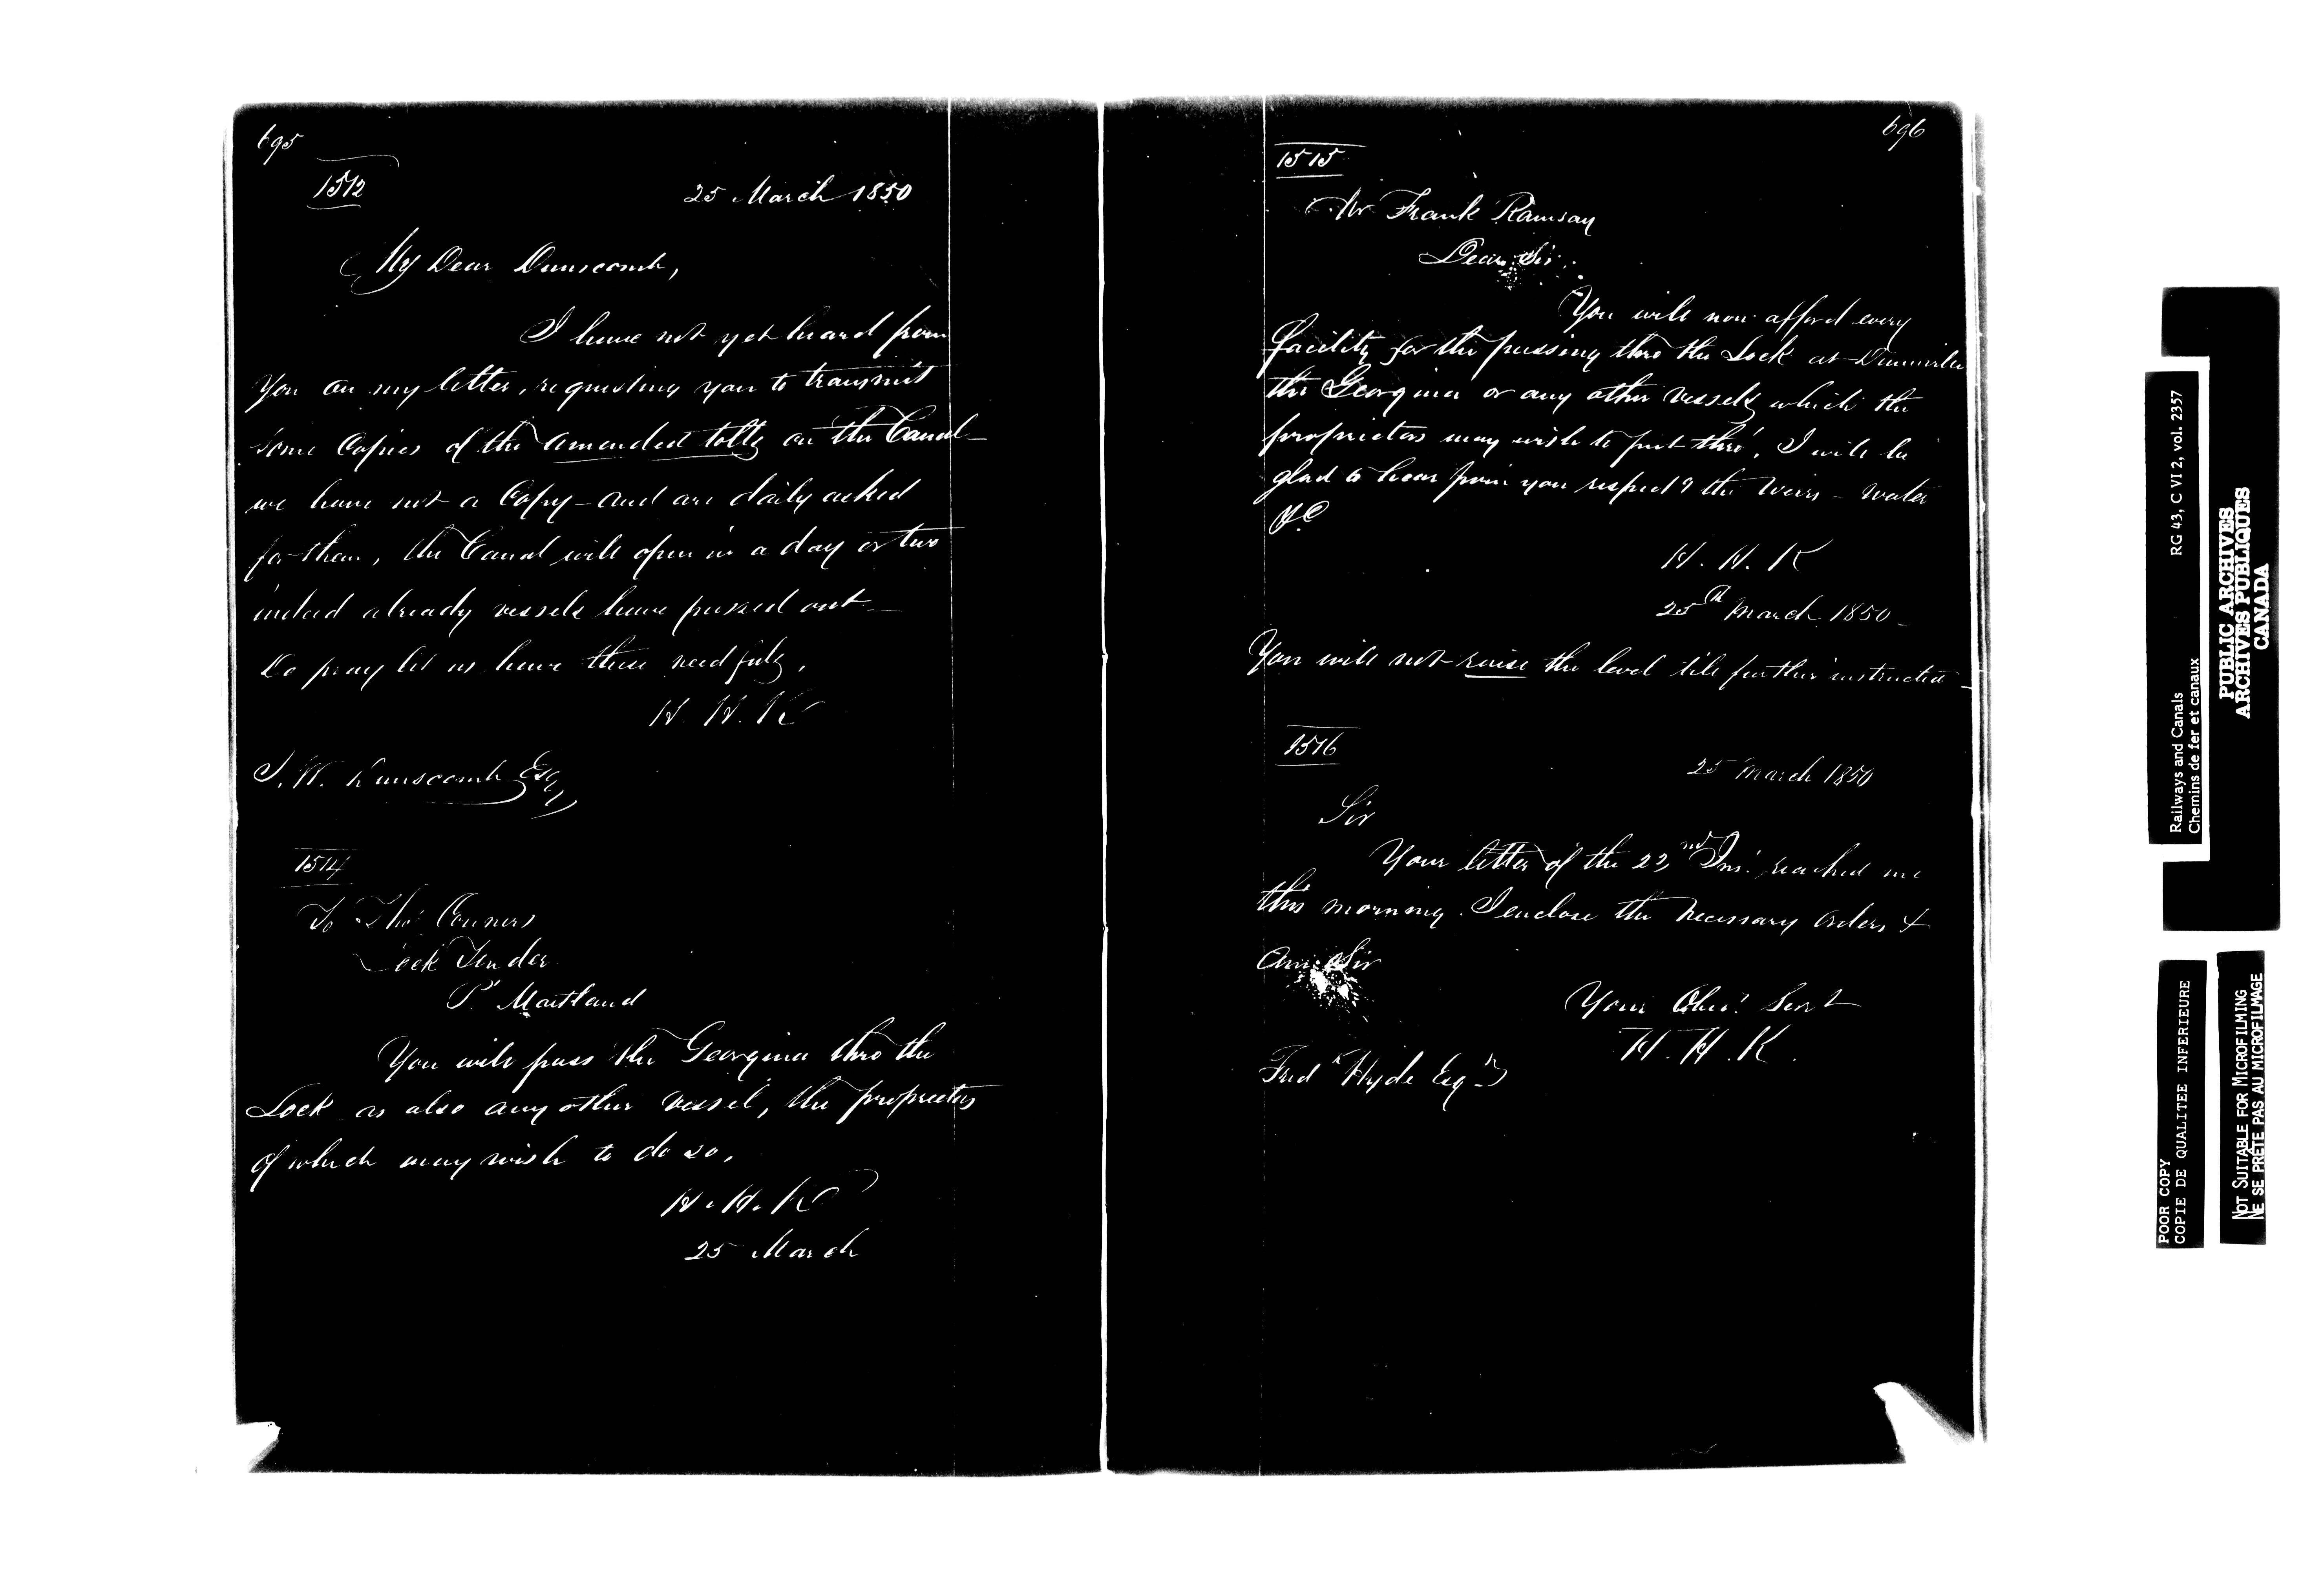 695
1512
25 March 1850
My Dear Dunscomb,
I have not yet heard from
you on my letter, requesting you to transmit
some Copies of the amended tolls on the Canal –
we have not a Copy – and are daily asked
for them, the Canal will open in a day or two
indeed already vessels have passed out –
Do pray let us have these needfuls,
H. H. K
J. W. Dunscomb Esq
1514
To Thos Conners
Lock Tender
Pt Maitland
You will pass the Georgina thro the
Lock as also any other vessel, the proprietors
of which may wish to do so,
H. H. K
25 March
696
1515
Mr Frank Ramsay
Dear Sir.
You will now afford every
facility for the passing thro the Lock at Dunnville
the Georgina or any other vessels which the
proprietors may wish to put thro', I will be
glad to hear from you respectg the Weirs – water
&c
H. H. K
25th March 1850 –
You will not raise the level till further instructed –
1516
25 March 1850
Sir
Your letter of the 22nd Inst reached me
this morning. I enclose the necessary orders, &
am Sir
Your Obed. Servt
H. H. K.
Fredk Hyde Esqr
Railways and Canals
Chemins de fer et canaux
RG 43, C VI 2, vol. 2357
PUBLIC ARCHIVES
ARCHIVES PUBLIQUES
CANADA
POOR COPY
COPIE DE QUALITEE INFERIEURE
NOT SUITABLE FOR MICROFILMING
NE SE PRÊTE PAS AU MICROFILMAGE